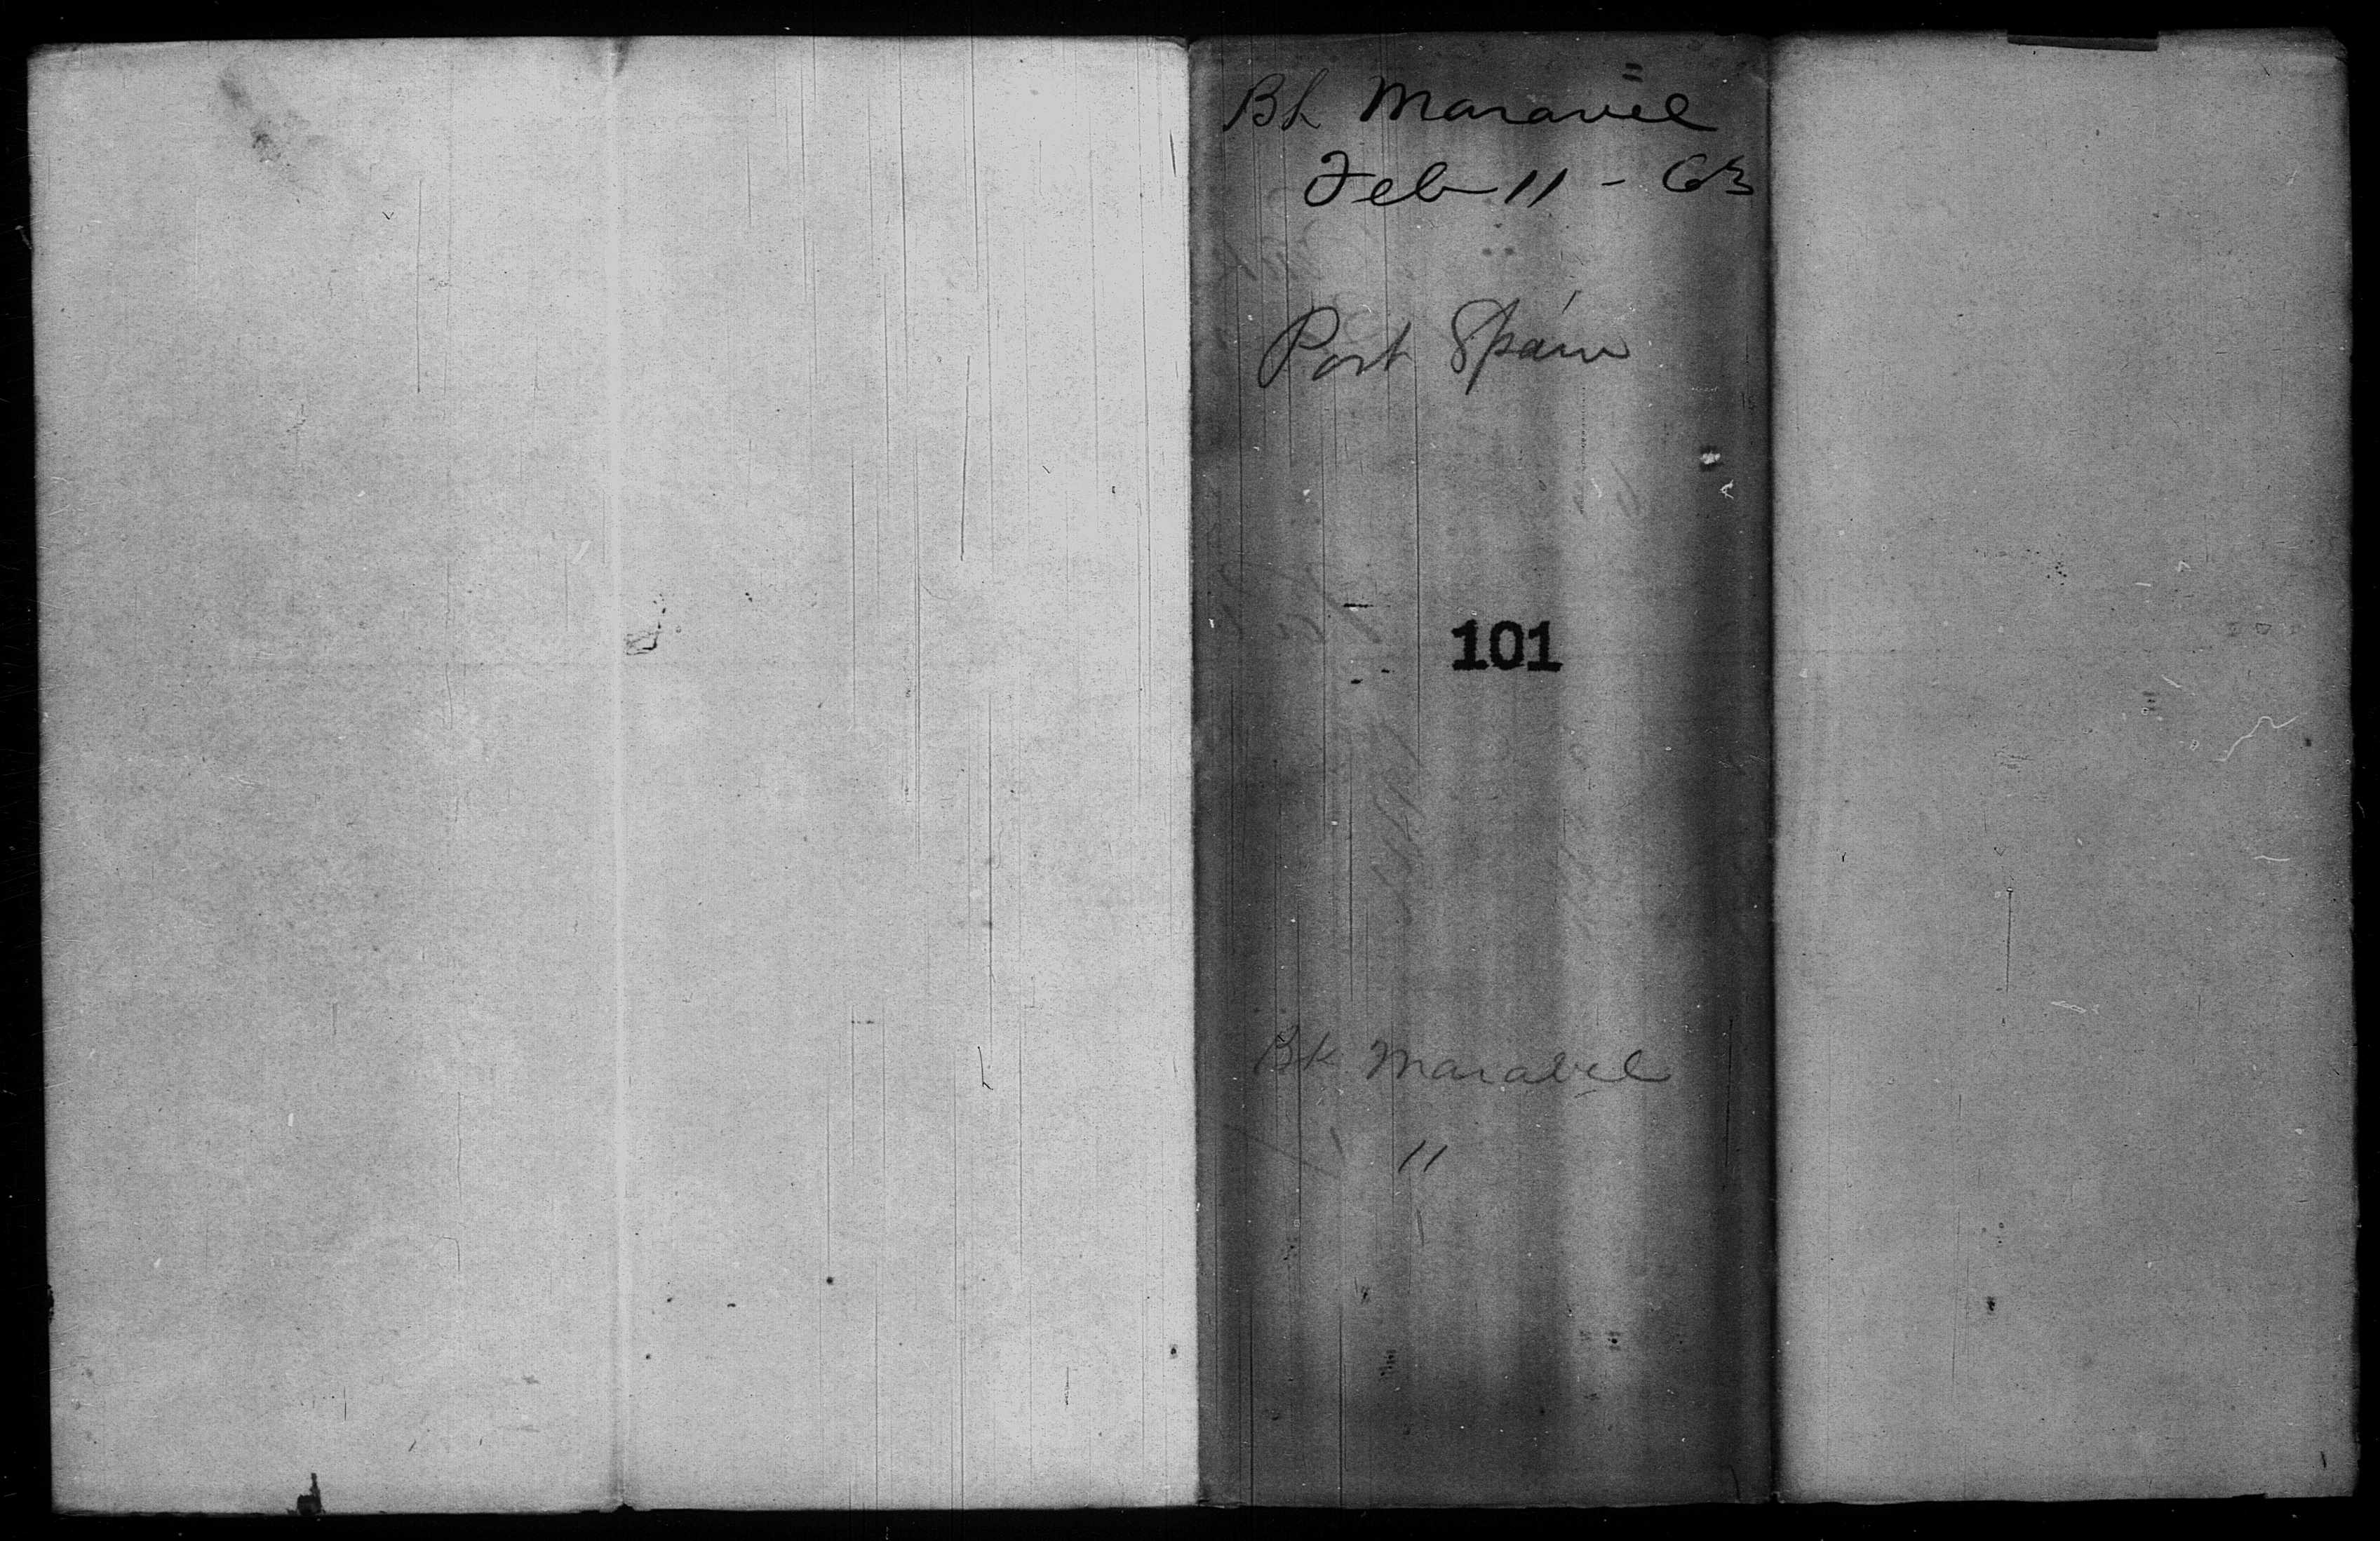 Bk Maravel
Feb 11 - 63
Port Spain
101
Bk Maravel
11